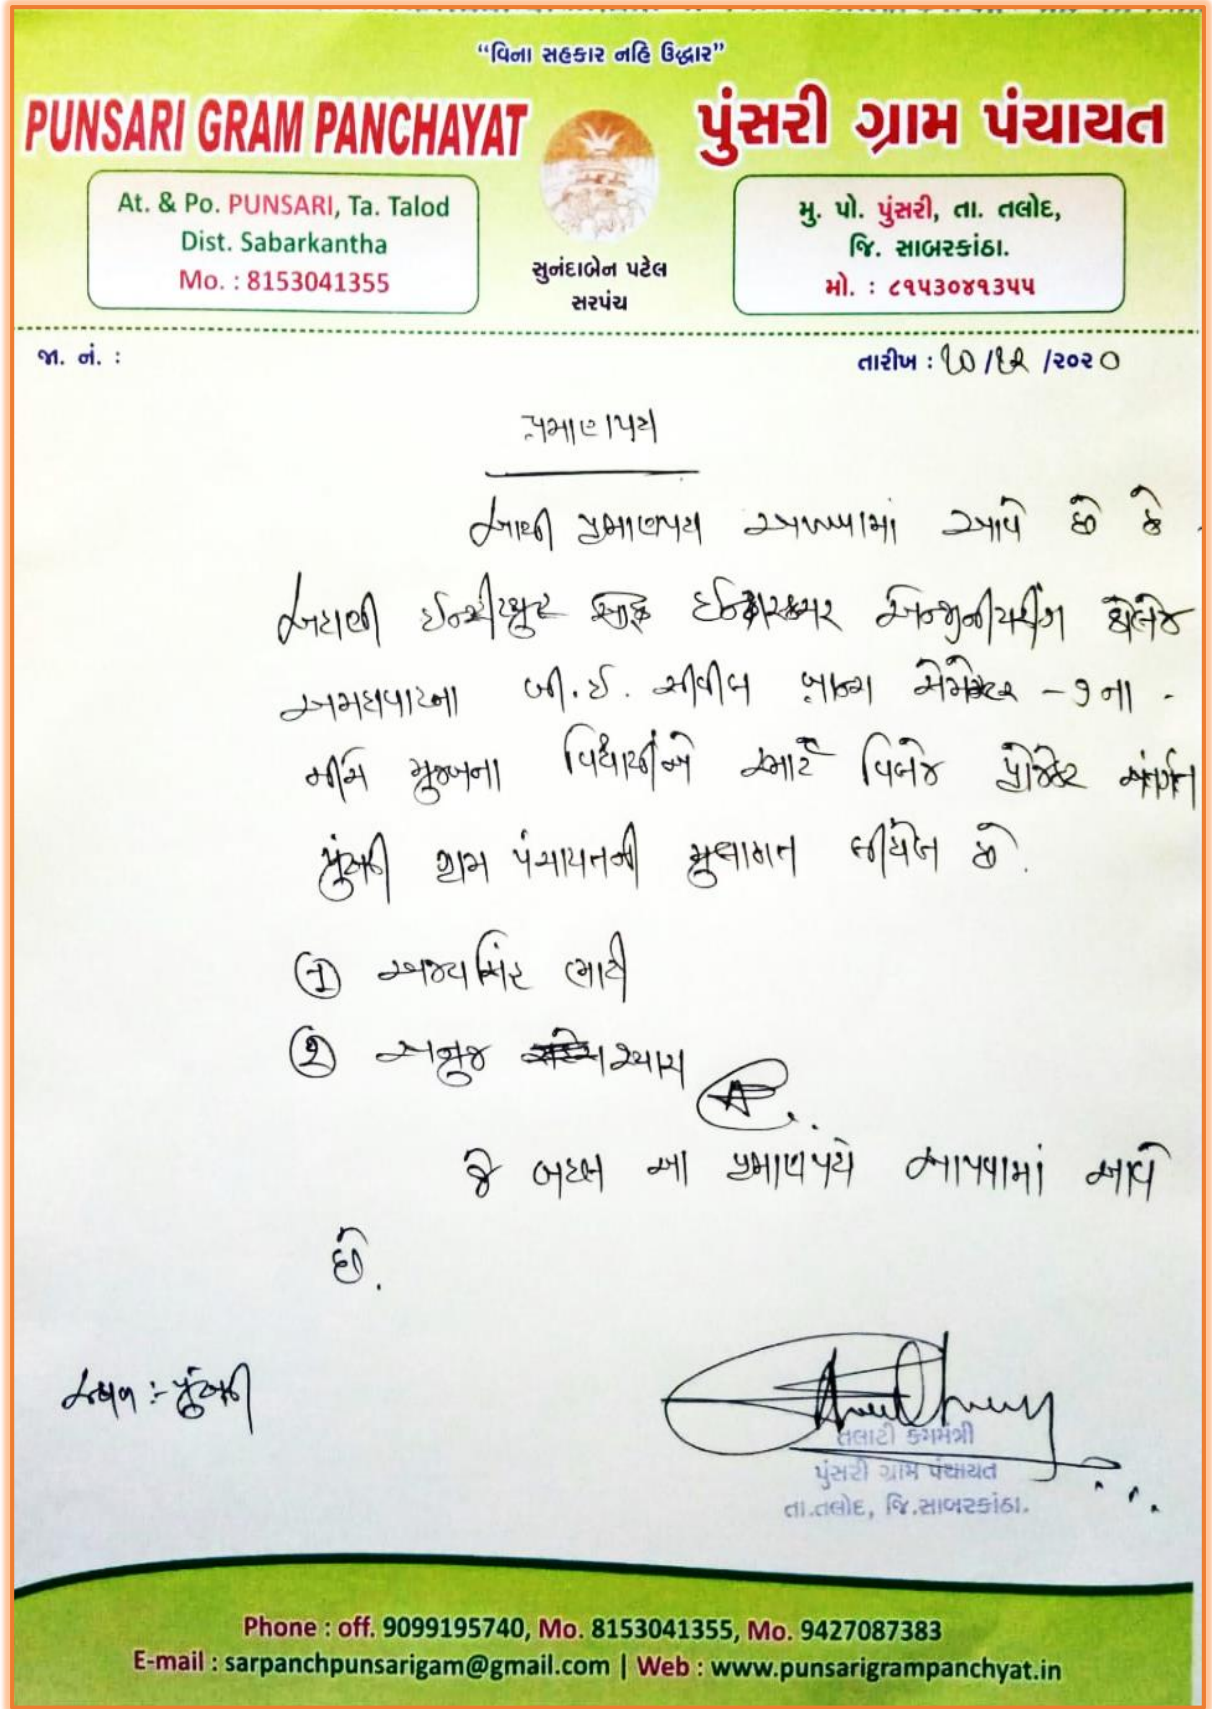 “વિના સહકાર નહિ ઉદ્ધાર”
PUNSARI GRAM PANCHAYAT
પુંસરી ગ્રામ પંચાયત
At. & Po. PUNSARI, Ta. Talod
Dist. Sabarkantha
Mo. : 8153041355
સુનંદાબેન પટેલ
સરપંચ
મુ. પો. પુંસરી, તા. તલોદ,
જિ. સાબરકાંઠા.
મો. : ૮૧૫૩૦૪૧૩૫૫
જા. નં. :
તારીખ : ૧૦/૧૨/૨૦૨૦
પ્રમાણપત્ર
આથી પ્રમાણપત્ર આપવામાં આવે છે કે
ઈન્સ્ટીટ્યુટ ઓફ ઈન્ફ્રાસ્ટ્રક્ચર એન્જીનીયરીંગ કોલેજ
અમદાવાદના બી.ઈ. સીવીલ બ્રાન્ચ સેમેસ્ટર -૭ના
નીચે મુજબના વિદ્યાર્થીઓએ સ્માર્ટ વિલેજ પ્રોજેક્ટ અંતર્ગત
પુંસરી ગ્રામ પંચાયતની મુલાકાત લીધેલ છે.
① અજયસિંહ ભાટી
② અનુજ વ્યાસ
જે બદલ આ પ્રમાણપત્ર આપવામાં આવે
છે.
સ્થળ :- પુંસરી
તલાટી કમમંત્રી
પુંસરી ગ્રામ પંચાયત
તા.તલોદ, જિ.સાબરકાંઠા.
Phone : off. 9099195740, Mo. 8153041355, Mo. 9427087383
E-mail : sarpanchpunsarigam@gmail.com | Web : www.punsarigrampanchyat.in